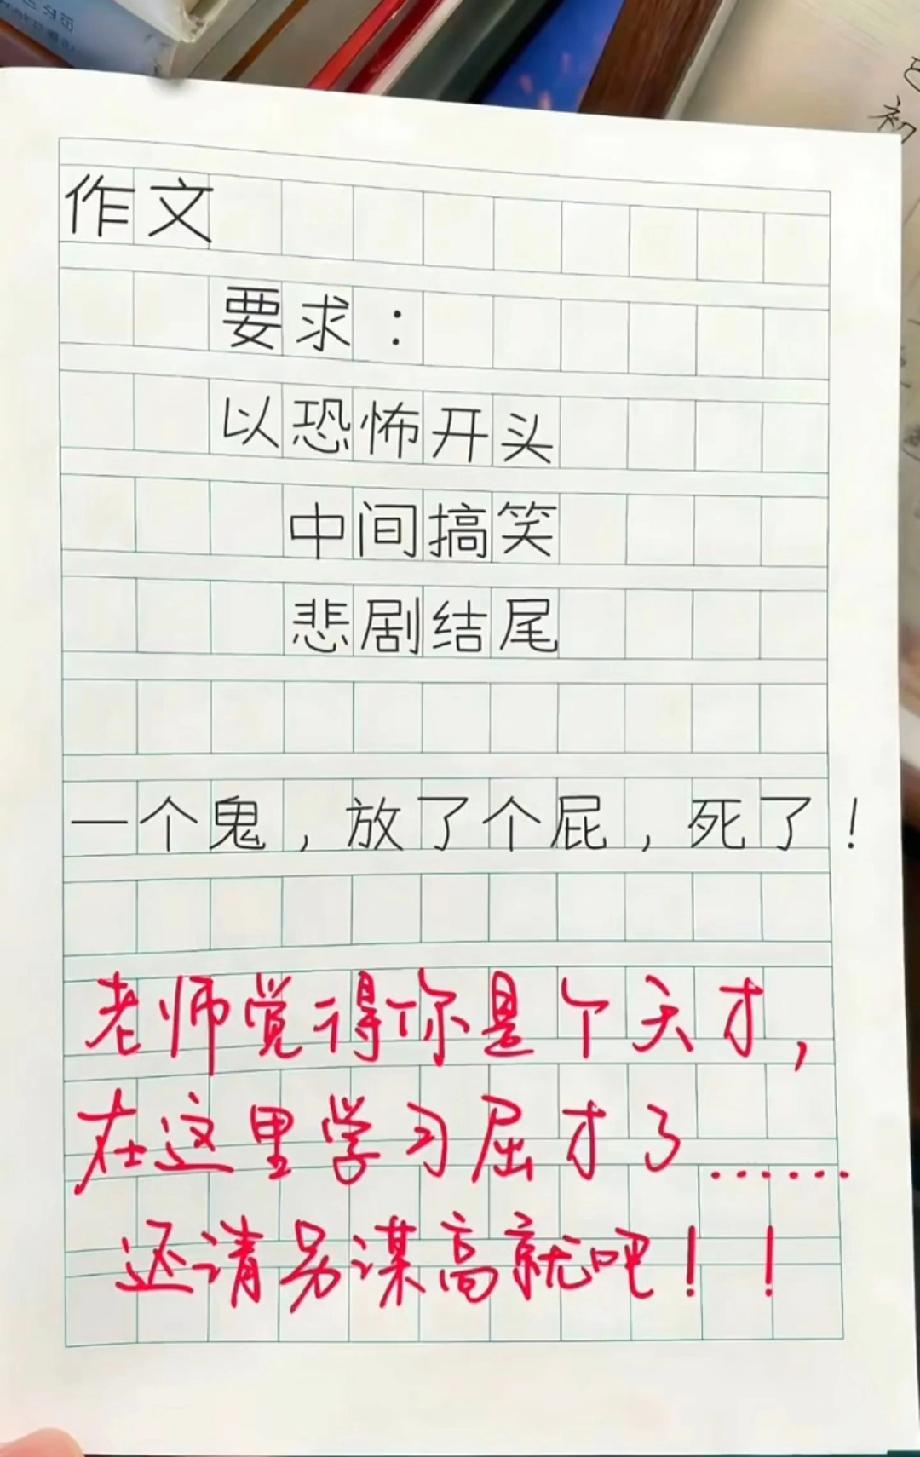 作文
要求：
以恐怖开头
中间搞笑
悲剧结尾
一个鬼，放了个屁，死了！
老师觉得你是个天才，
在这里学习屈才了……
还请另谋高就吧！！
初